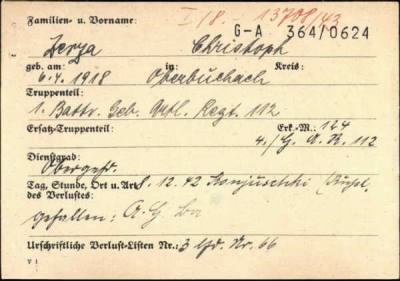 Familien- u. Vorname: I/8. - 13708/43
G-A 364/0624
Zerza Christoph
geb. am: in: Kreis:
6.4.1918 Oberbuchach
Truppenteil:
1. Battr. Geb. Artl. Regt. 112
Ersatz-Truppenteil: Erk.-M.: 124
4./G. A. R. 112
Dienstgrad:
Obergefr.
Tag, Stunde, Ort u. Art 8. 12. 42
des Verlustes:
gefallen: A. G.
Urschriftliche Verlust-Listen Nr.: 3 lfd. Nr. 66
V 1